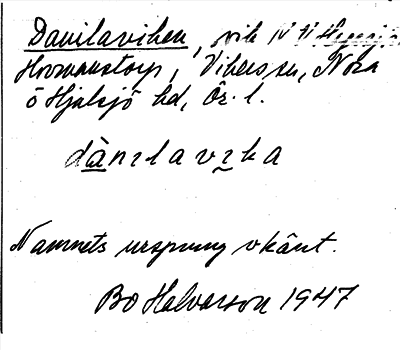 Danilaviken, vik N
Hrommstorp, Vibers sn, Nora
o Hjulsjö hd, Ör. l.
dànɪlavɪka
Namnets ursprung okänt.
Bo Halvarson 1947